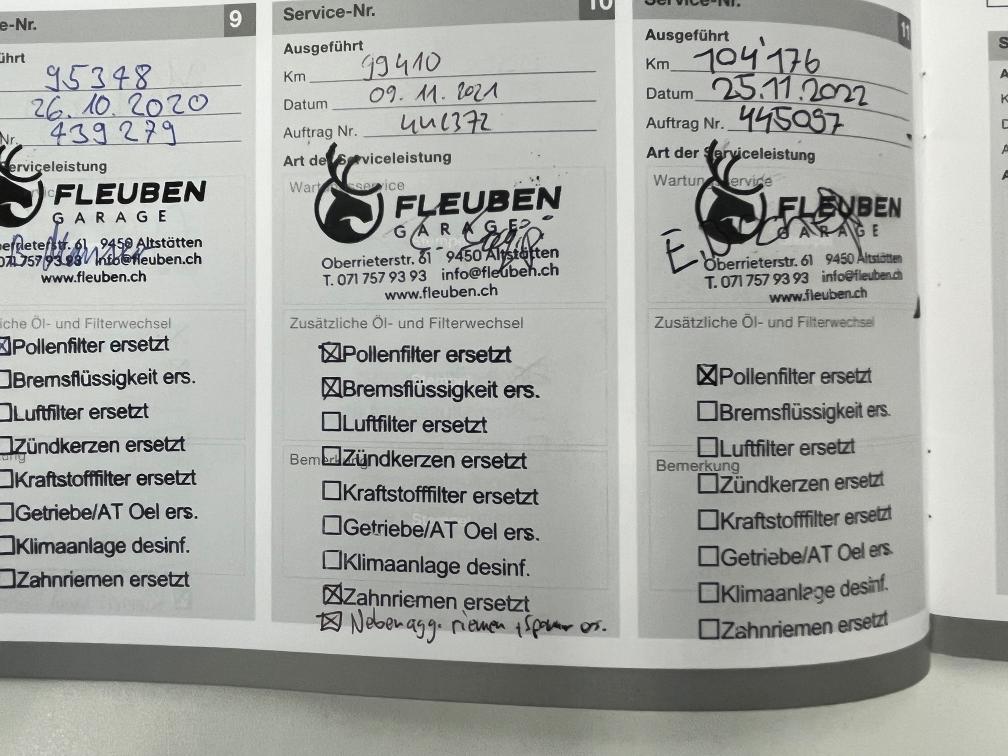 e-Nr. 9
ührt
95348
26.10.2020
Nr. 439 279
erviceleistung
FLEUBEN
GARAGE
berrieterstr. 61 9450 Altstätten
071 757 93 93 info@fleuben.ch
www.fleuben.ch
iche Öl- und Filterwechsel
Pollenfilter ersetzt
Bremsflüssigkeit ers.
Luftfilter ersetzt
Zündkerzen ersetzt
Kraftstofffilter ersetzt
Getriebe/AT Oel ers.
Klimaanlage desinf.
Zahnriemen ersetzt
Service-Nr. 10
Ausgeführt
Km 99410
Datum 09. 11. 2021
Auftrag Nr. 442372
Art der Serviceleistung
Wartungsservice
FLEUBEN
GARAGE
Oberrieterstr. 61 9450 Altstätten
T. 071 757 93 93 info@fleuben.ch
www.fleuben.ch
Zusätzliche Öl- und Filterwechsel
Pollenfilter ersetzt
Bremsflüssigkeit ers.
Luftfilter ersetzt
Bemerkung
Zündkerzen ersetzt
Kraftstofffilter ersetzt
Getriebe/AT Oel ers.
Klimaanlage desinf.
Zahnriemen ersetzt
Nebenagg. riemen + Spanner ers.
Service-Nr. 11
Ausgeführt
Km 104'176
Datum 25.11.2022
Auftrag Nr. 445097
Art der Serviceleistung
Wartungsservice
FLEUBEN
GARAGE
Oberrieterstr. 61 9450 Altstätten
T. 071 757 93 93 info@fleuben.ch
www.fleuben.ch
Zusätzliche Öl- und Filterwechsel
Pollenfilter ersetzt
Bremsflüssigkeit ers.
Luftfilter ersetzt
Bemerkung
Zündkerzen ersetzt
Kraftstofffilter ersetzt
Getriebe/AT Oel ers.
Klimaanlage desinf.
Zahnriemen ersetzt